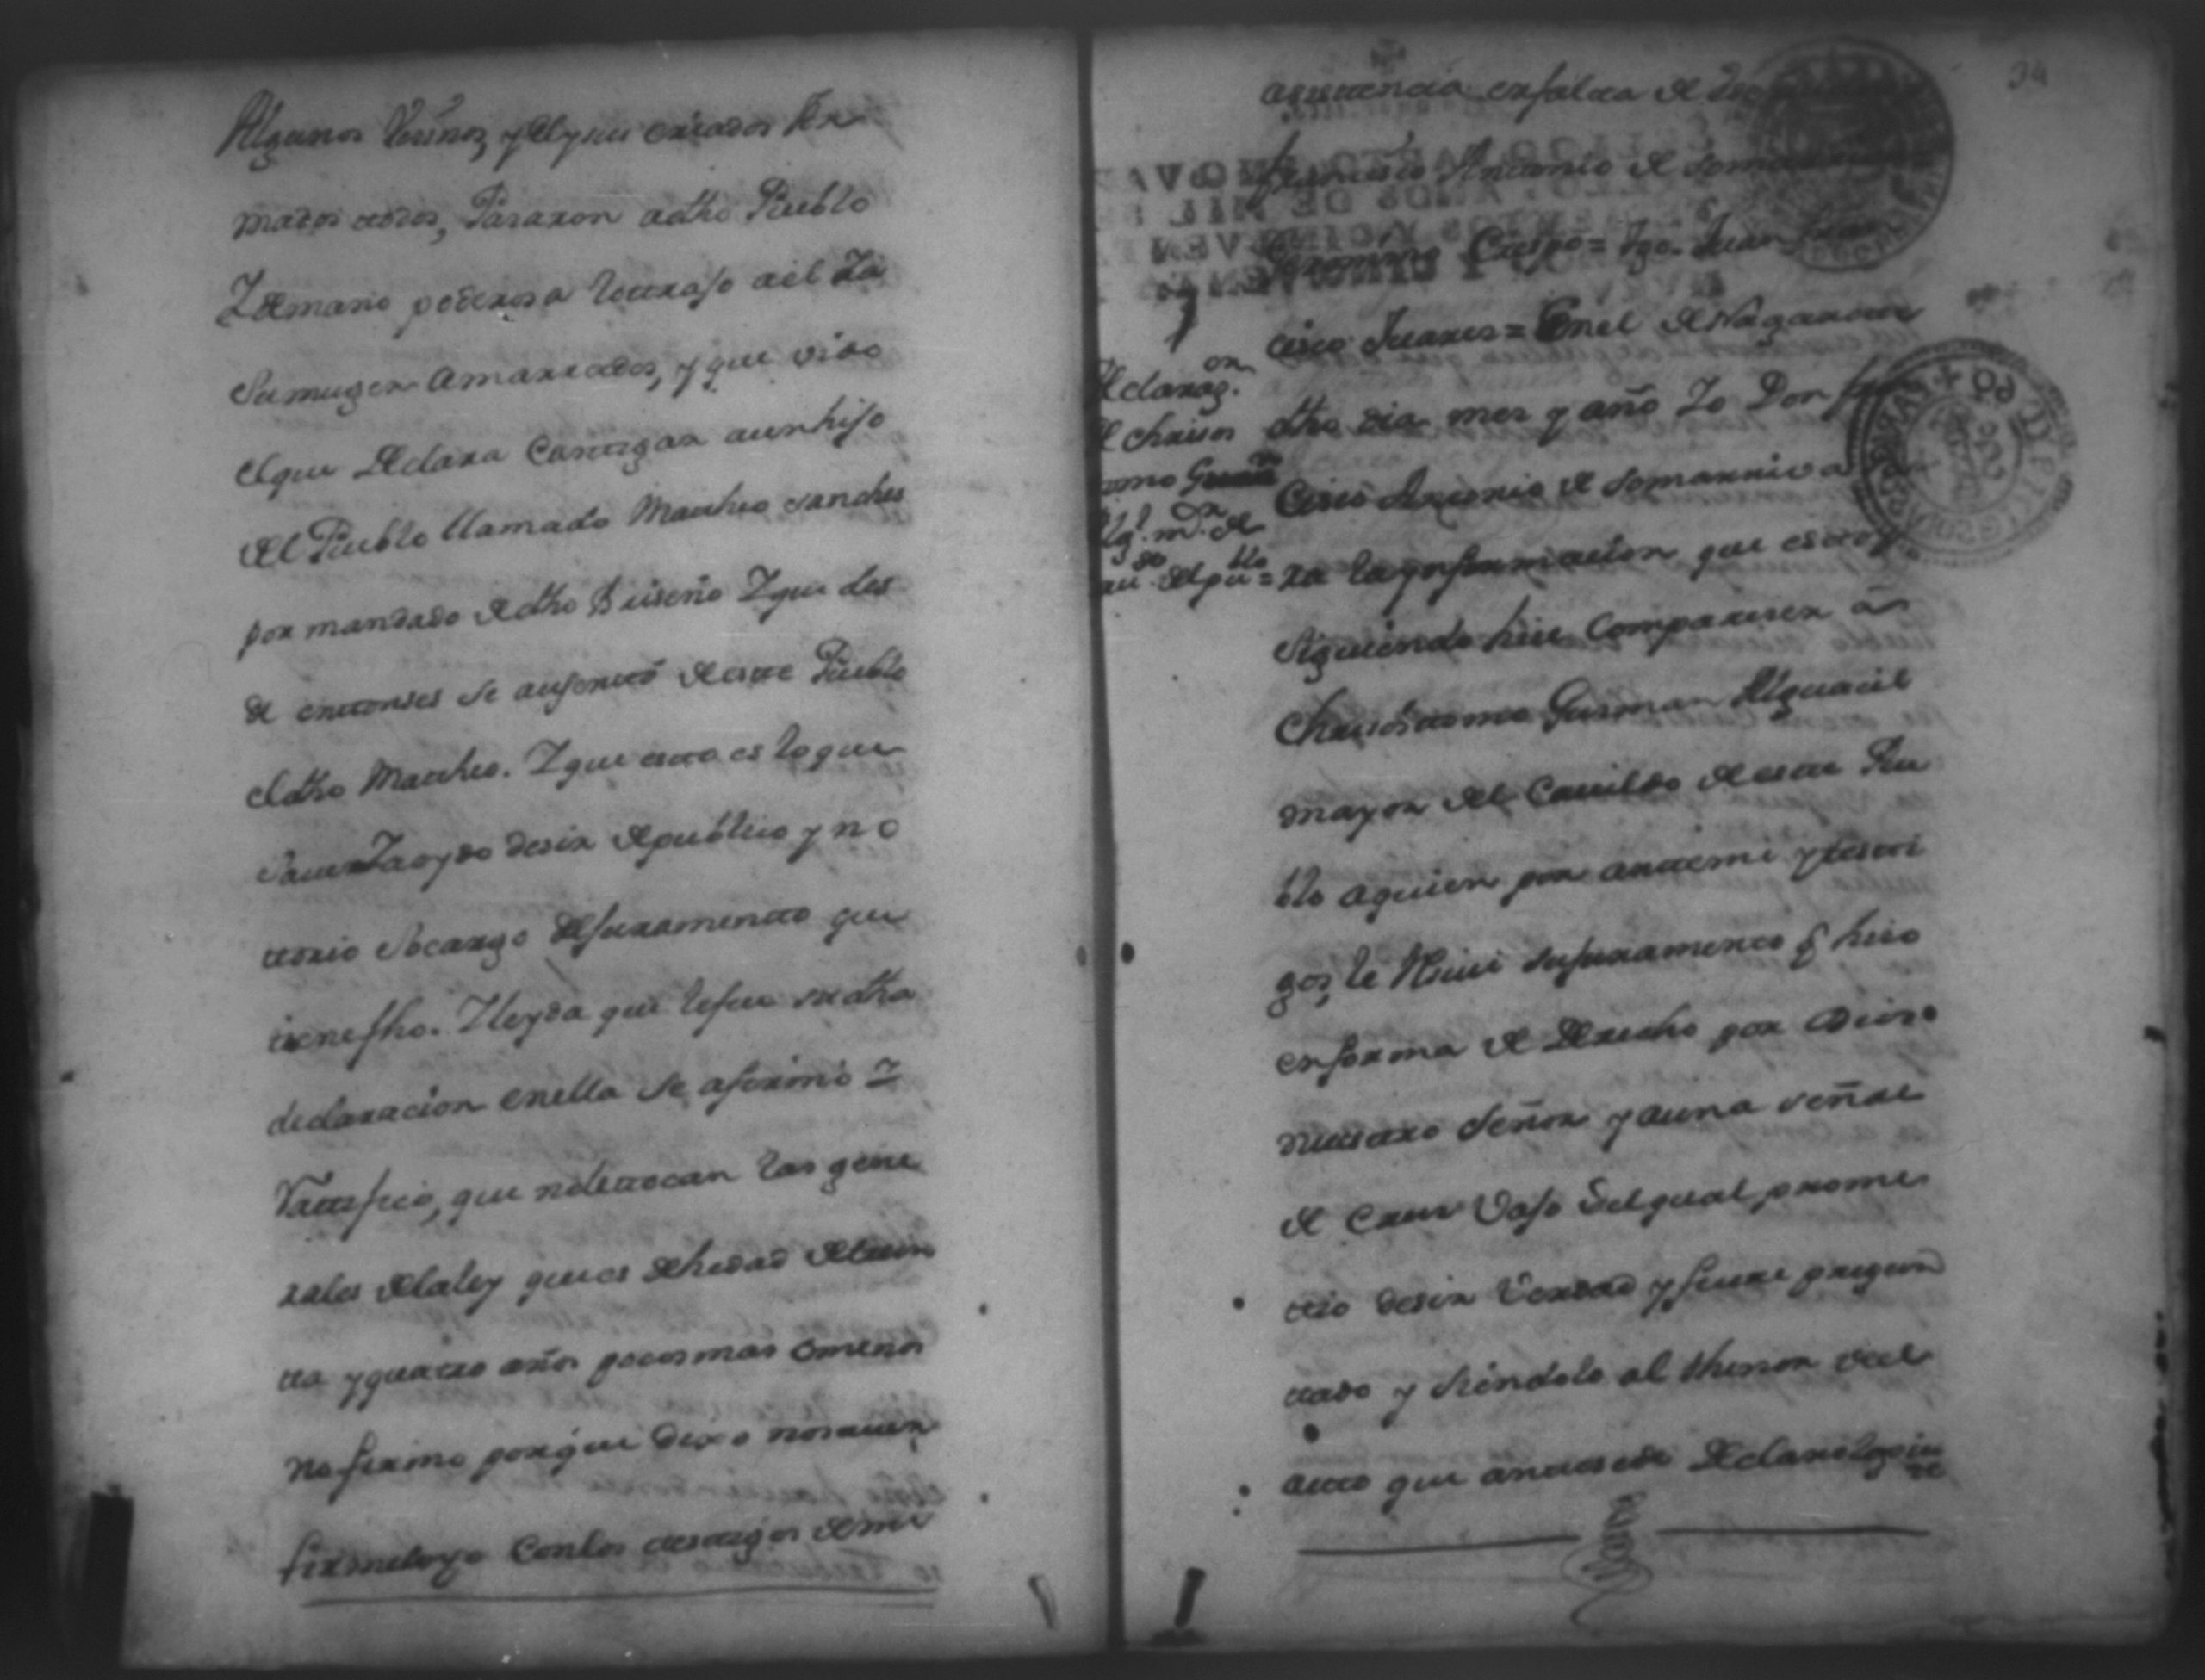 Algunos Vecinos, y el y sus criados Ar
mados todos, Pasaron a dho Pueblo
Y de mano poderosa lo trajo a el Ya
Su muger amarrados, y que vido
el que declara Castigar a un hijo
del Pueblo llamado Matheo Sanches
por mandado de dho Briseño Y que des
de entonses se ausentó de este Pueblo
el dho Matheo. Y que esto es lo que
Save Ya oydo desir de publico y no
torio Socargo del juramento que
tiene fho. Y leyda que le fue su dha
declaracion en ella se afirmó y
Ratifico, que no le tocan las gene
rales de la ley que es de hedad de trein
ta y quatro años pocos mas o menos
no firmo porque dixo no saver
firmelo yo Con los testigos de mi
34
asistencia en falta de
Francisco Antonio de Somarriva
Geronimo Crespo = tgo. Juan
cisco Juares = En el de Nagarote
dho dia mes y año Yo Don Fran
Cisco Antonio de Somarriva
ra la ynformacion que estoy
Siguiendo hise Compareser a
Chrisostomo Gusman Alguacil
mayor del Cavildo de este Pue
blo a quien por ante mi y testi
gos, le Resivi su juramento q hiso
en forma de derecho por Dios
nuestro Señor y a una señal
de Cruz Vajo del qual prome
tio desir Verdad y fuere pregun
tado y Siendolo al thenor del
auto que antesede declaro lo sigui
te
Declarazon.
de Chrisos
tomo
Alg.l mor. de